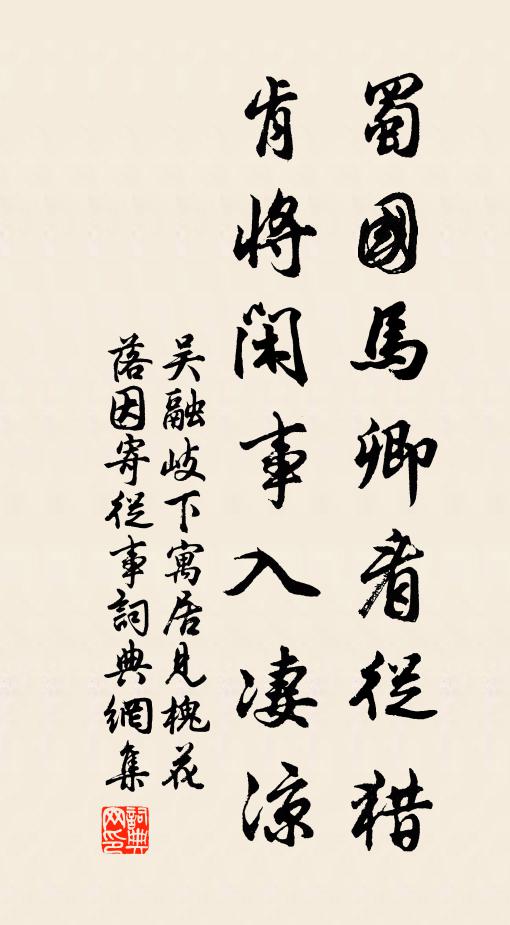 蜀國馬卿看從猎
肯將閑事入凄涼
吴融岐下寓居見槐花
落因寄從事詞典網集
詞典
网印